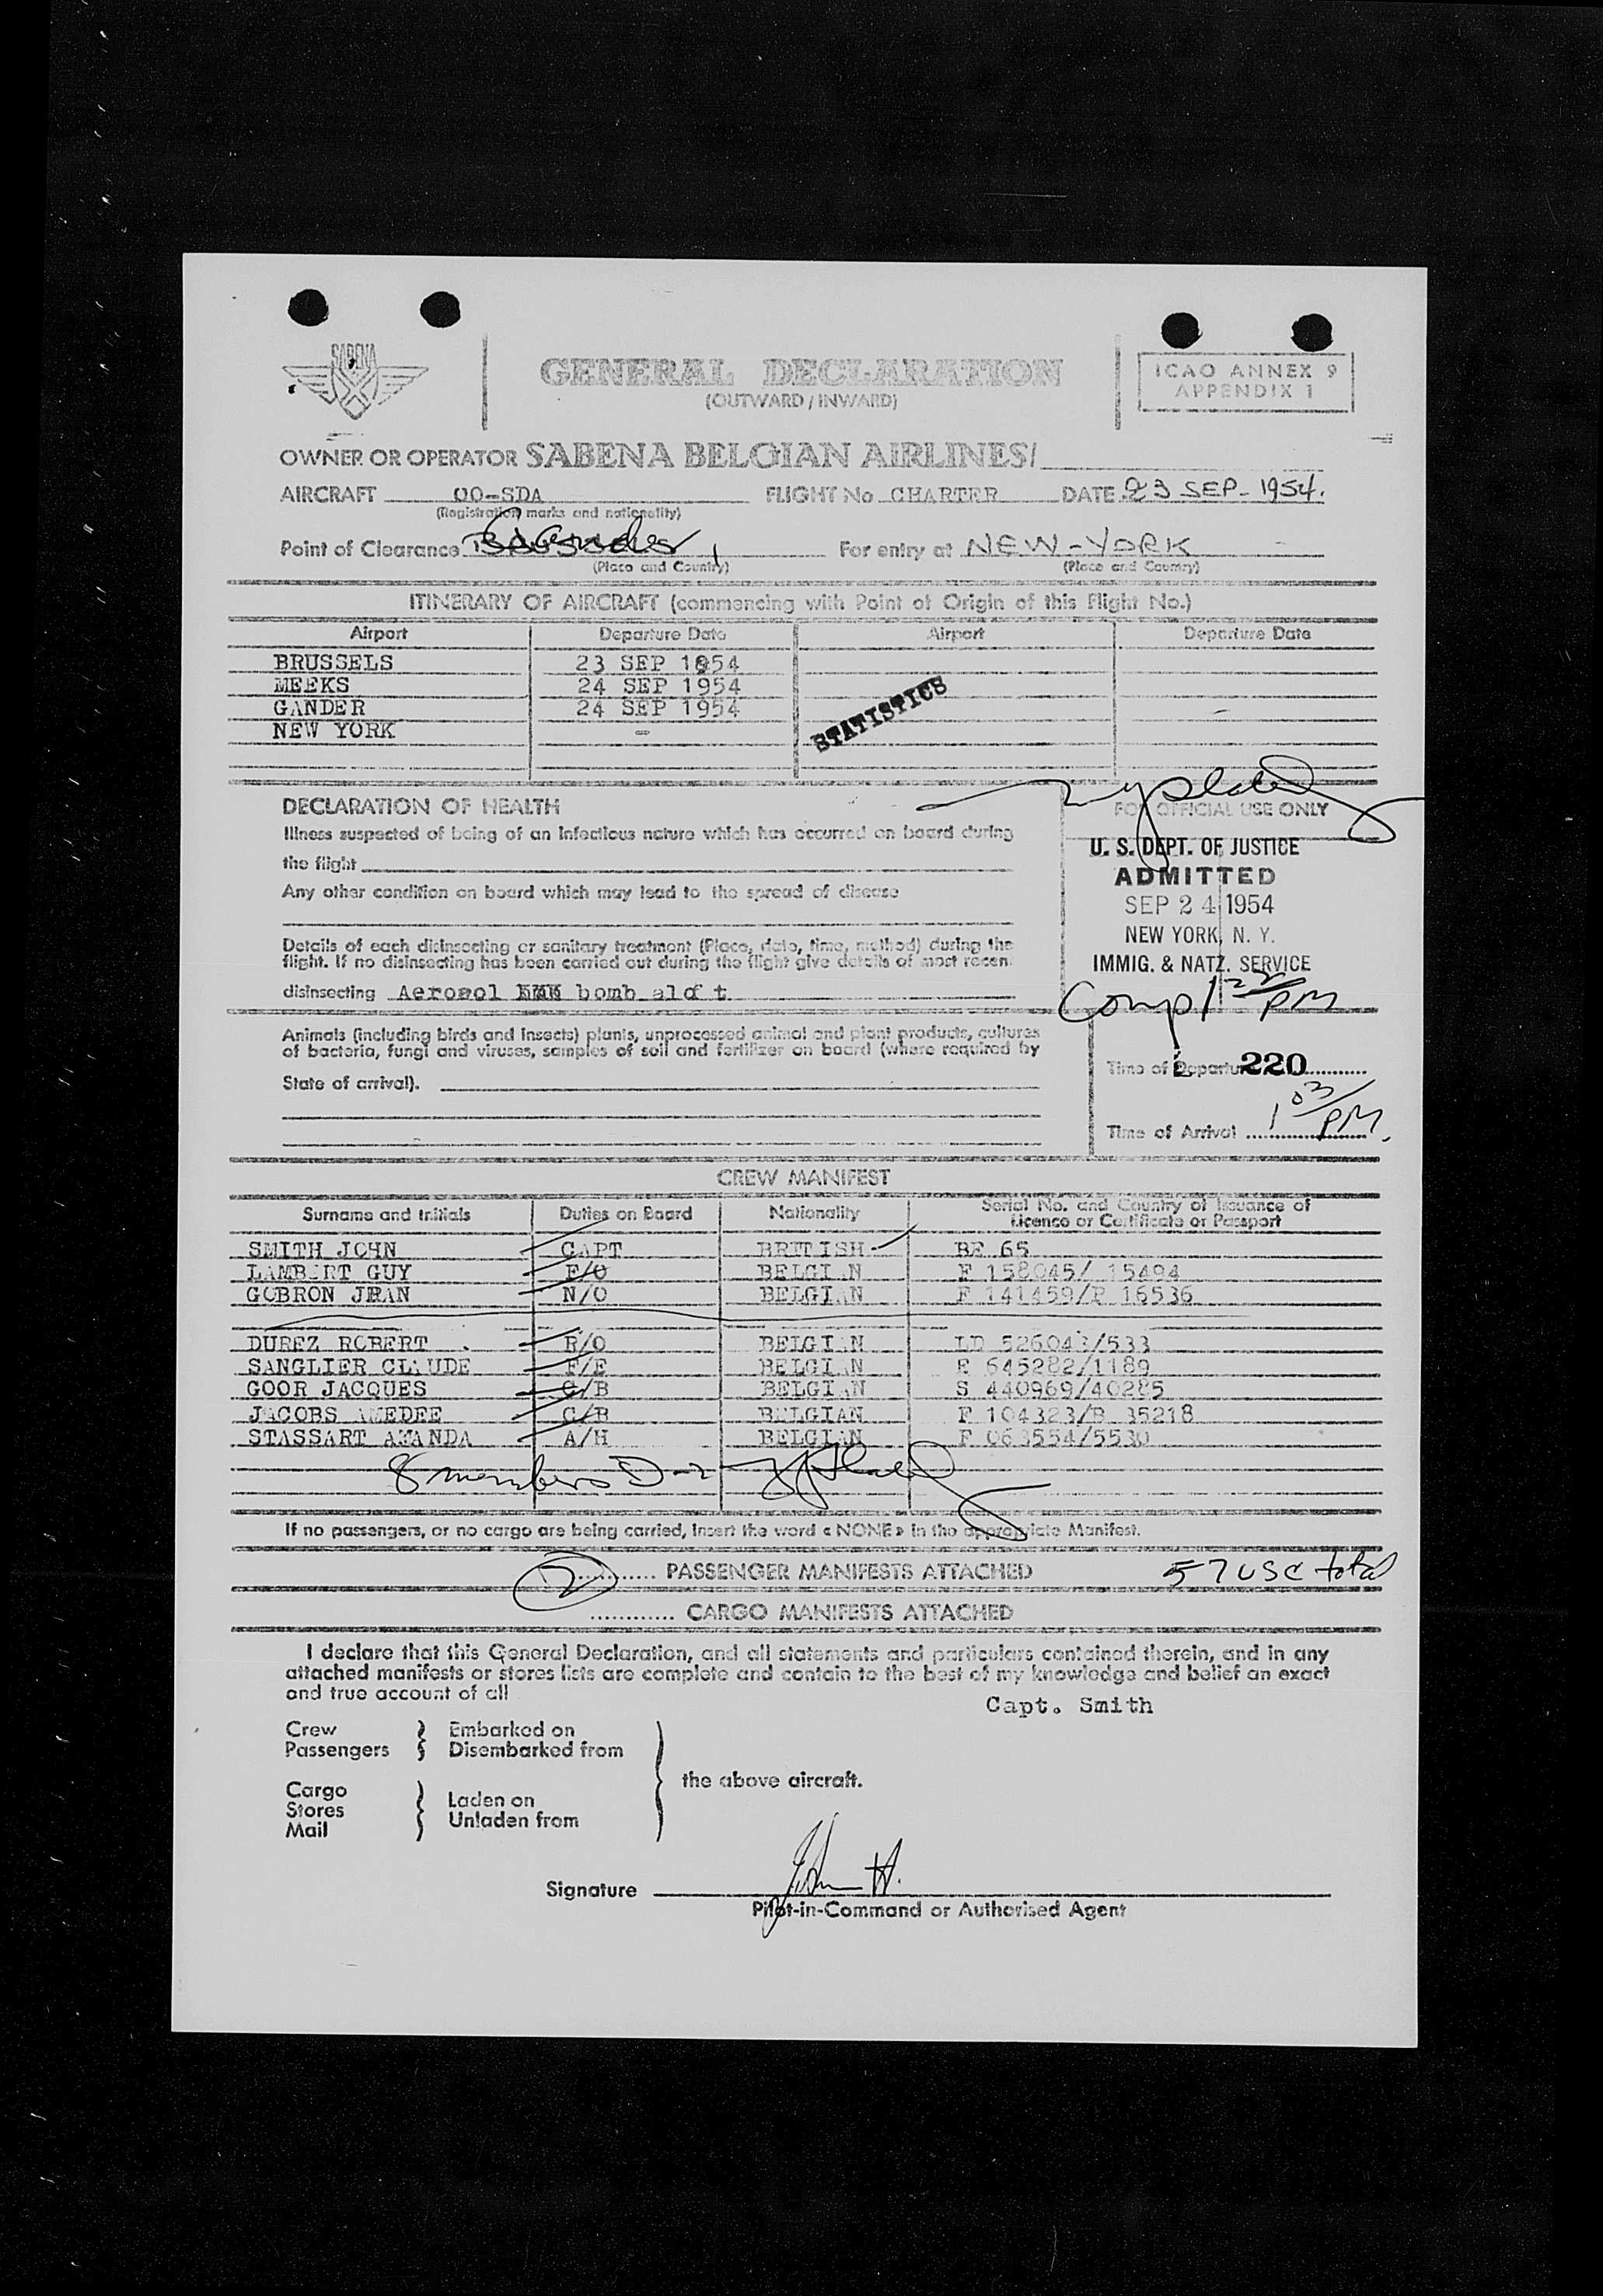 SABENA
GENERAL DECLARATION
(OUTWARD / INWARD)
ICAO ANNEX 9
APPENDIX 1
OWNER OR OPERATOR SABENA BELGIAN AIRLINES/
AIRCRAFT OO-SDA FLIGHT No CHARTER DATE 23 SEP-1954.
(Registration marks and nationality)
Point of Clearance Gander For entry at NEW-YORK
(Place and Country) (Place and Country)
ITINERARY OF AIRCRAFT (commencing with Point of Origin of this Flight No.)
Airport Departure Date Airport Departure Date
BRUSSELS 23 SEP 1954
MEEKS 24 SEP 1954
GANDER 24 SEP 1954
NEW YORK -
STATISTICS
DECLARATION OF HEALTH
Illness suspected of being of an infectious nature which has occurred on board during
the flight
Any other condition on board which may lead to the spread of disease
Details of each disinsecting or sanitary treatment (Place, date, time, method) during the
flight. If no disinsecting has been carried out during the flight give details of most recent
disinsecting Aerosol bomb aloft
FOR OFFICIAL USE ONLY
U. S. DEPT. OF JUSTICE
ADMITTED
SEP 24 1954
NEW YORK, N. Y.
IMMIG. & NATZ. SERVICE
Comp 1 22 PM
Animals (including birds and insects) plants, unprocessed animal and plant products, cultures
of bacteria, fungi and viruses, samples of soil and fertilizer on board (where required by
State of arrival).
Time of Departure 220
Time of Arrival 1 03 PM.
CREW MANIFEST
Surname and Initials Duties on Board Nationality Serial No. and Country of Issuance of
Licence or Certificate or Passport
SMITH JOHN CAPT BRITISH BE 65
LAMBERT GUY F/O BELGIAN F 158045/ 15494
GOBRON JEAN N/O BELGIAN F 141459/P 16536
DUREZ ROBERT R/O BELGIAN LD 526043/533
SANGLIER CLAUDE F/E BELGIAN E 645282/1189
GOOR JACQUES C/B BELGIAN S 440969/40285
JACOBS AMEDEE C/B BELGIAN F 104323/B 35218
STASSART AMANDA A/H BELGIAN F 063554/5530
8 members D-2
If no passengers, or no cargo are being carried, insert the word « NONE » in the appropriate Manifest.
2 PASSENGER MANIFESTS ATTACHED 57 USC total
CARGO MANIFESTS ATTACHED
I declare that this General Declaration, and all statements and particulars contained therein, and in any
attached manifests or stores lists are complete and contain to the best of my knowledge and belief an exact
and true account of all
Capt. Smith
Crew Embarked on
Passengers Disembarked from
the above aircraft.
Cargo
Stores Laden on
Mail Unladen from
Signature
Pilot-in-Command or Authorised Agent